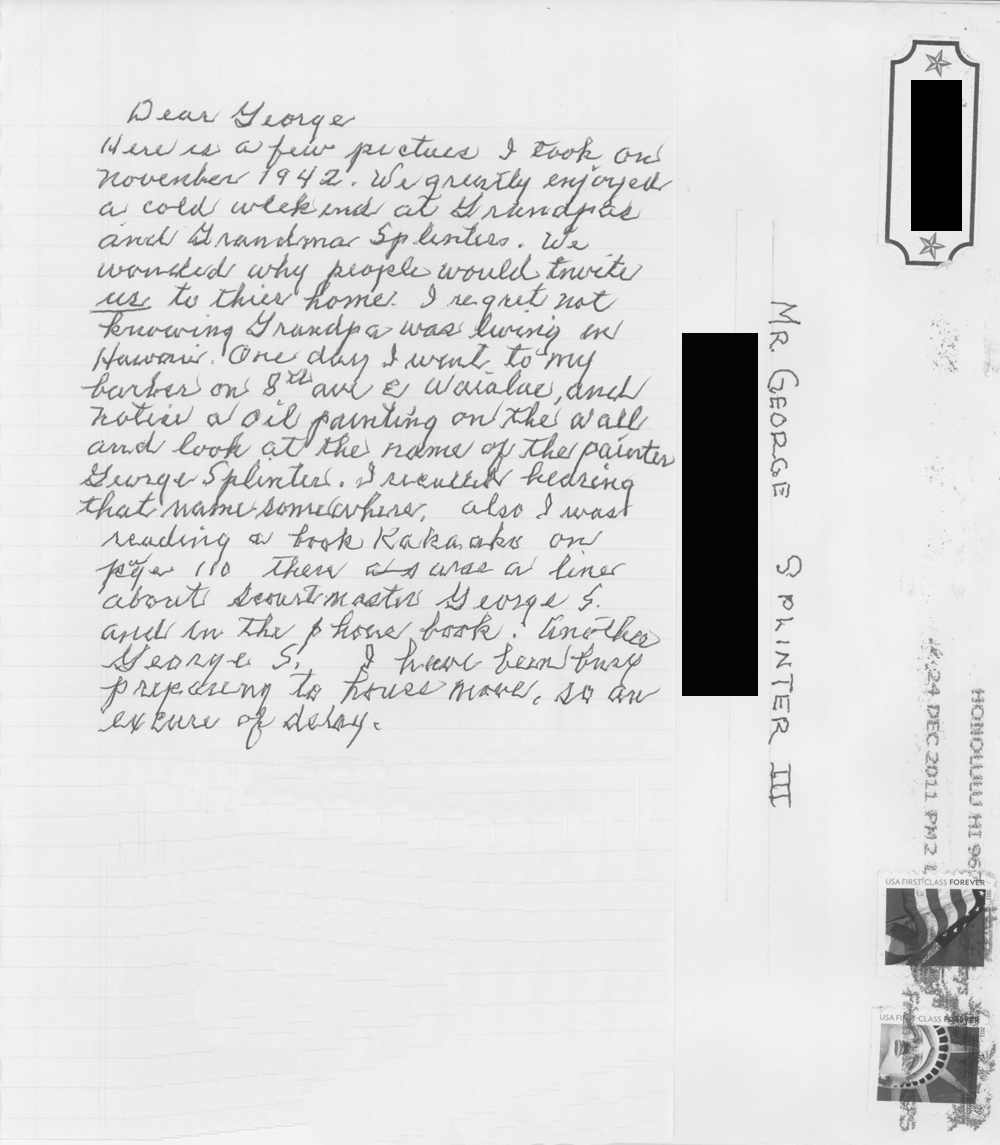 Dear George
Here is a few pictues I took on
November 1942. We greatly enjoyed
a cold weekend at Grandpas
and Grandma Splinters. We
wonded why people would invite
us to thier home. I regret not
knowing Grandpa was living in
Hawaii. One day I went to my
barber on 8th ave & Waialae, and
notise a oil painting on the wall
and look at the name of the painter
George Splinter. I recalled hearing
that name somewhere. also I was
reading a book Kakaako on
page 110 there was a line
about scoutmaster George S.
and in the phone book! Another
George S. I have been busy
preparing to house move. so an
excuse of delay.
MR. GEORGE SPLINTER III
HONOLULU HI 967
24 DEC 2011 PM 2 L
USA FIRST-CLASS FOREVER
USA FIRST-CLASS FOREVER